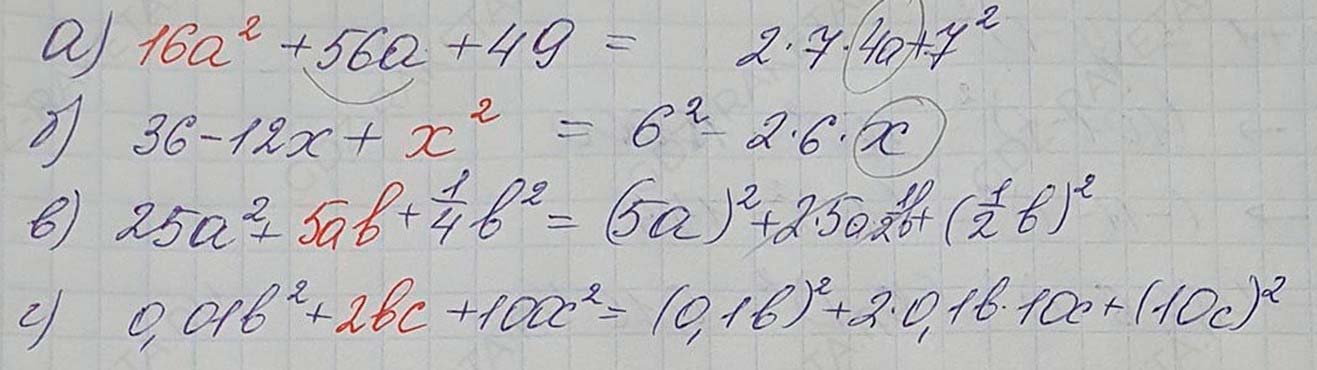 а) 16a² + 56a + 49 = 2·7·4a + 7²
б) 36 - 12x + x² = 6² - 2·6·x
в) 25a² + 5ab + 1/4 b² = (5a)² + 2·5a 1/2 b + (1/2 b)²
г) 0,01b² + 2bc + 100c² = (0,1b)² + 2·0,1b·10c + (10c)²